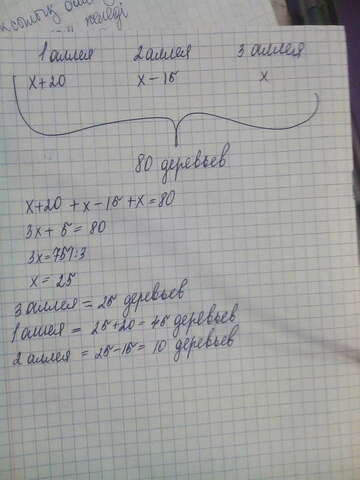 женеді
1 аллея 2 аллея 3 аллея
x+20 x-15 x
80 деревьев
x+20 +x-15+x=80
3x+5=80
3x=75|:3
x=25
3 аллея = 25 деревьев
1 аллея = 25+20=45 деревьев
2 аллея = 25-15= 10 деревьев